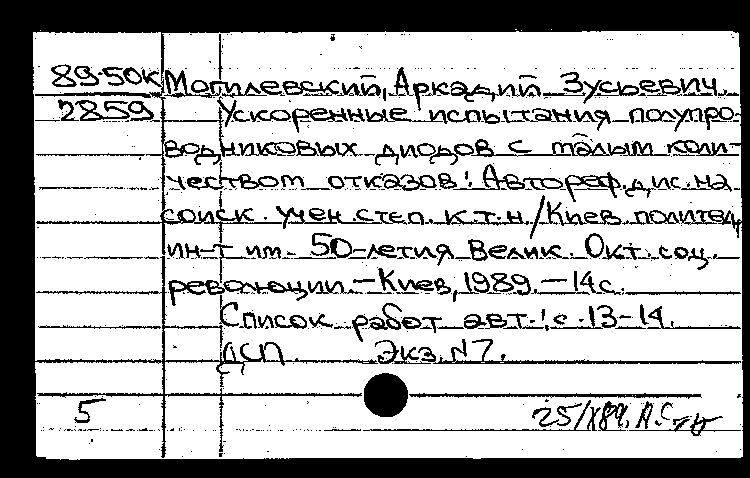 89-50к Могилевский, Аркадий Зусьевич.
2859 Ускоренные испытания полупро-
водниковых диодов с малым коли-
чеством отказов: Автореф. дис. на
соиск. учен. степ. к.т.н. / Киев. политехн.
ин-т им. 50-летия Велик. Окт. соц.
революции. — Киев, 1989. — 14с.
Список работ авт.: с. 13-14.
ДСП. Экз. N7.
5 25/X89.